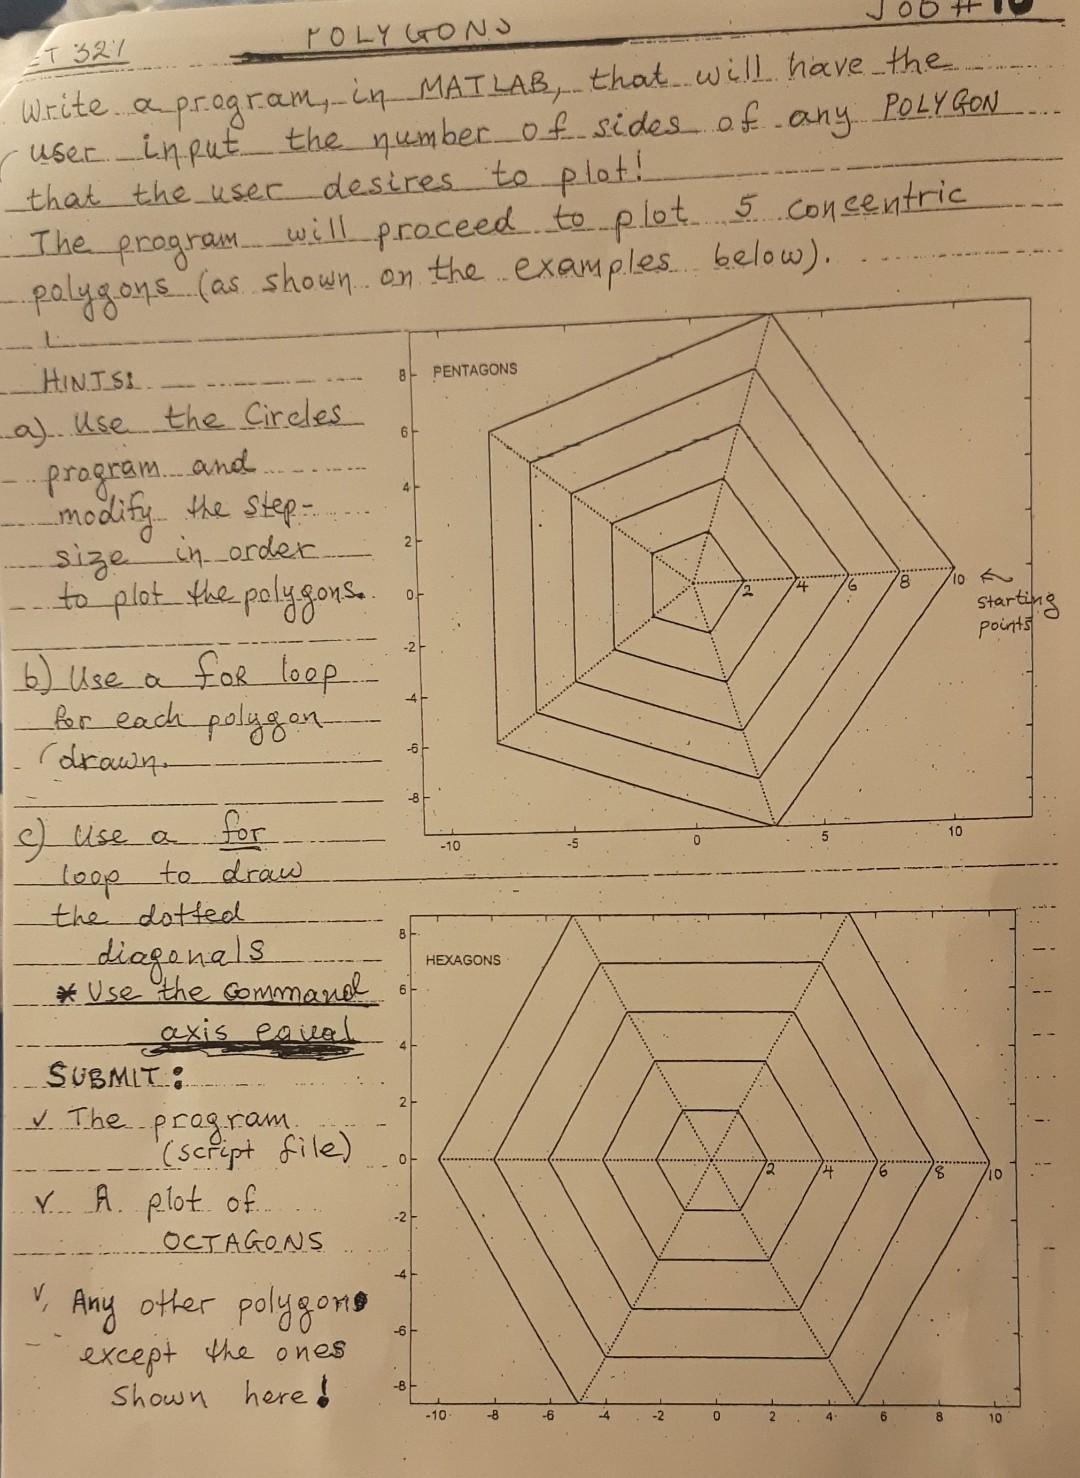 ET 321
POLYGONS
JOB #10
Write a program, in MATLAB, that will have the
user input the number of sides of any POLYGON
that the user desires to plot!
The program will proceed to plot 5 concentric
polygons (as shown on the examples below).
HINTS:
a) Use the Circles
program and
modify the step-
size in order
to plot the polygons.
b) Use a for loop
for each polygon
drawn.
c) Use a for
loop to draw
the dotted
diagonals
* Use the command
axis equal
SUBMIT:
✓ The program
(script file)
✓ A plot of
OCTAGONS
✓ Any other polygons
except the ones
shown here!
PENTAGONS
8
6
4
2
0
-2
-4
-6
-8
-10 -5 0 5 10
2 4 6 8 10 ←
starting
points
HEXAGONS
8
6
4
2
0
-2
-4
-6
-8
-10 -8 -6 -4 -2 0 2 4 6 8 10
2 4 6 8 10